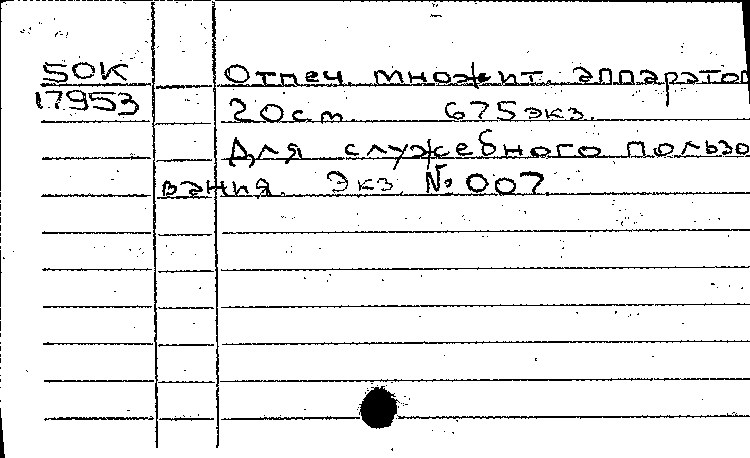 50К Отпеч. множит. аппаратом
17953 20см. 675экз.
Для служебного пользо
вания. Экз. №007.